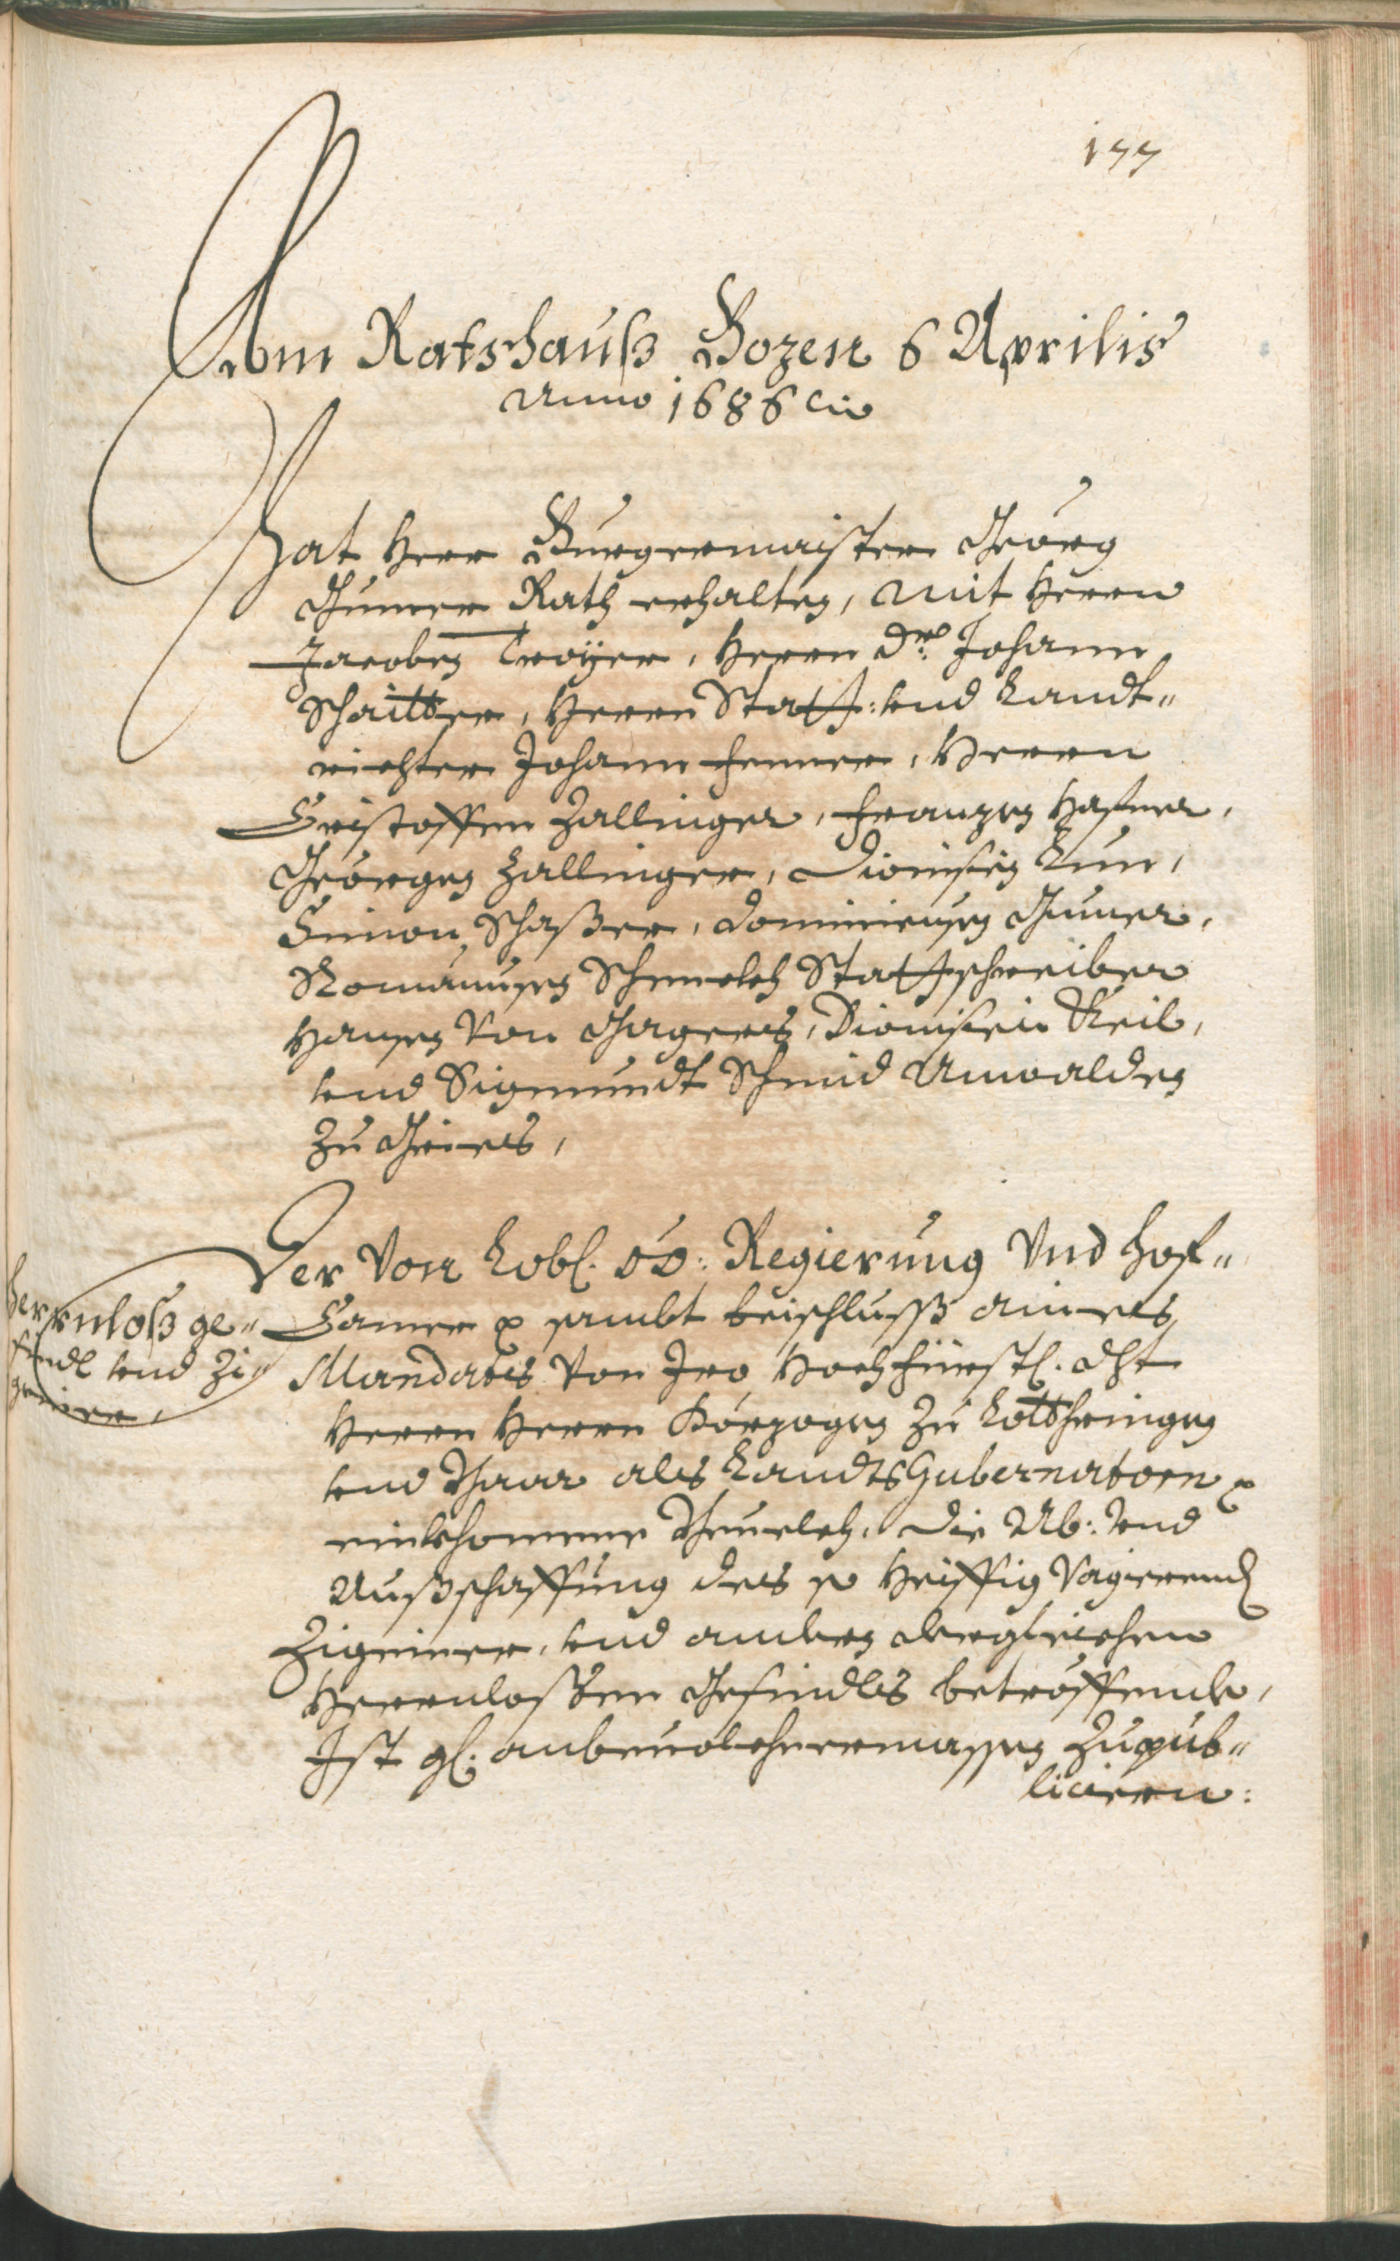 177
Am Ratshauß Bozen 6 Aprilis
Anno 1686
Hat Herr Burgermaister Georg
Gumer Rath erhalten, mit Herrn
Jacoben Troyer, Herrn Dr. Johann
Herrn Statt: und Landt-
richter Johann Fenner, Herrn
Cristoffen Zallinger, Franzen Hafner,
Georgen Zallinger, Dionisien
Simon Schaßer, Dominicusen Gumer,
Romanusen Schmelch Stattschreiber
Hansen von Gagers, Dionisien
und Sigmundt Schmid Anwalden
zu Gries,
Herrnloß ge-
sindl und Zi-
geiner,
Der von Lobl. OÖ: Regierung und Hof-
Camer sambt beischluss aines
Mandats von Iro Hochfürstl. Dht
Herrn Herrn Hörzogen zu Lotthringen
und Baar als Landts Gubernatorn
einkhomne Bevelch, die Ab: und
Außschaffung des so heiffig Vagierend
Zigeiner, und andern dergleichen
Herrnlossen Gesindls betröffendt,
Ist gl. anbevolchnermassen zu pub-
liciern: